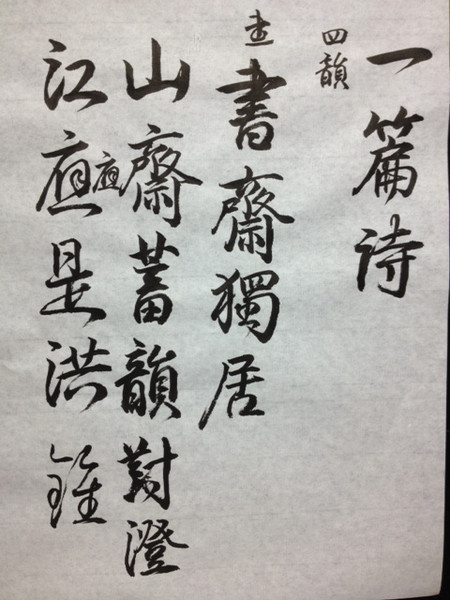 一篇詩
四韻
書齋獨居
山齋蓄韻對澄
應
江應是洪